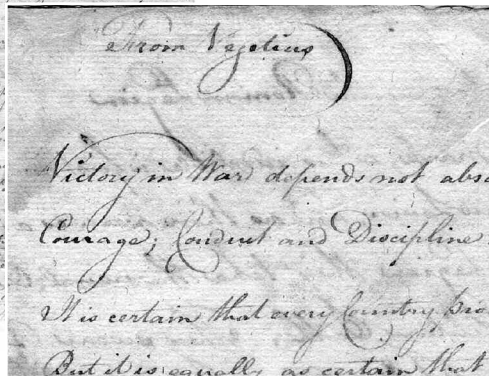 From Vegetius
Victory in War depends not abso
Courage; Conduct and Discipline
It is certain that every Country pro
But it is equally as certain that